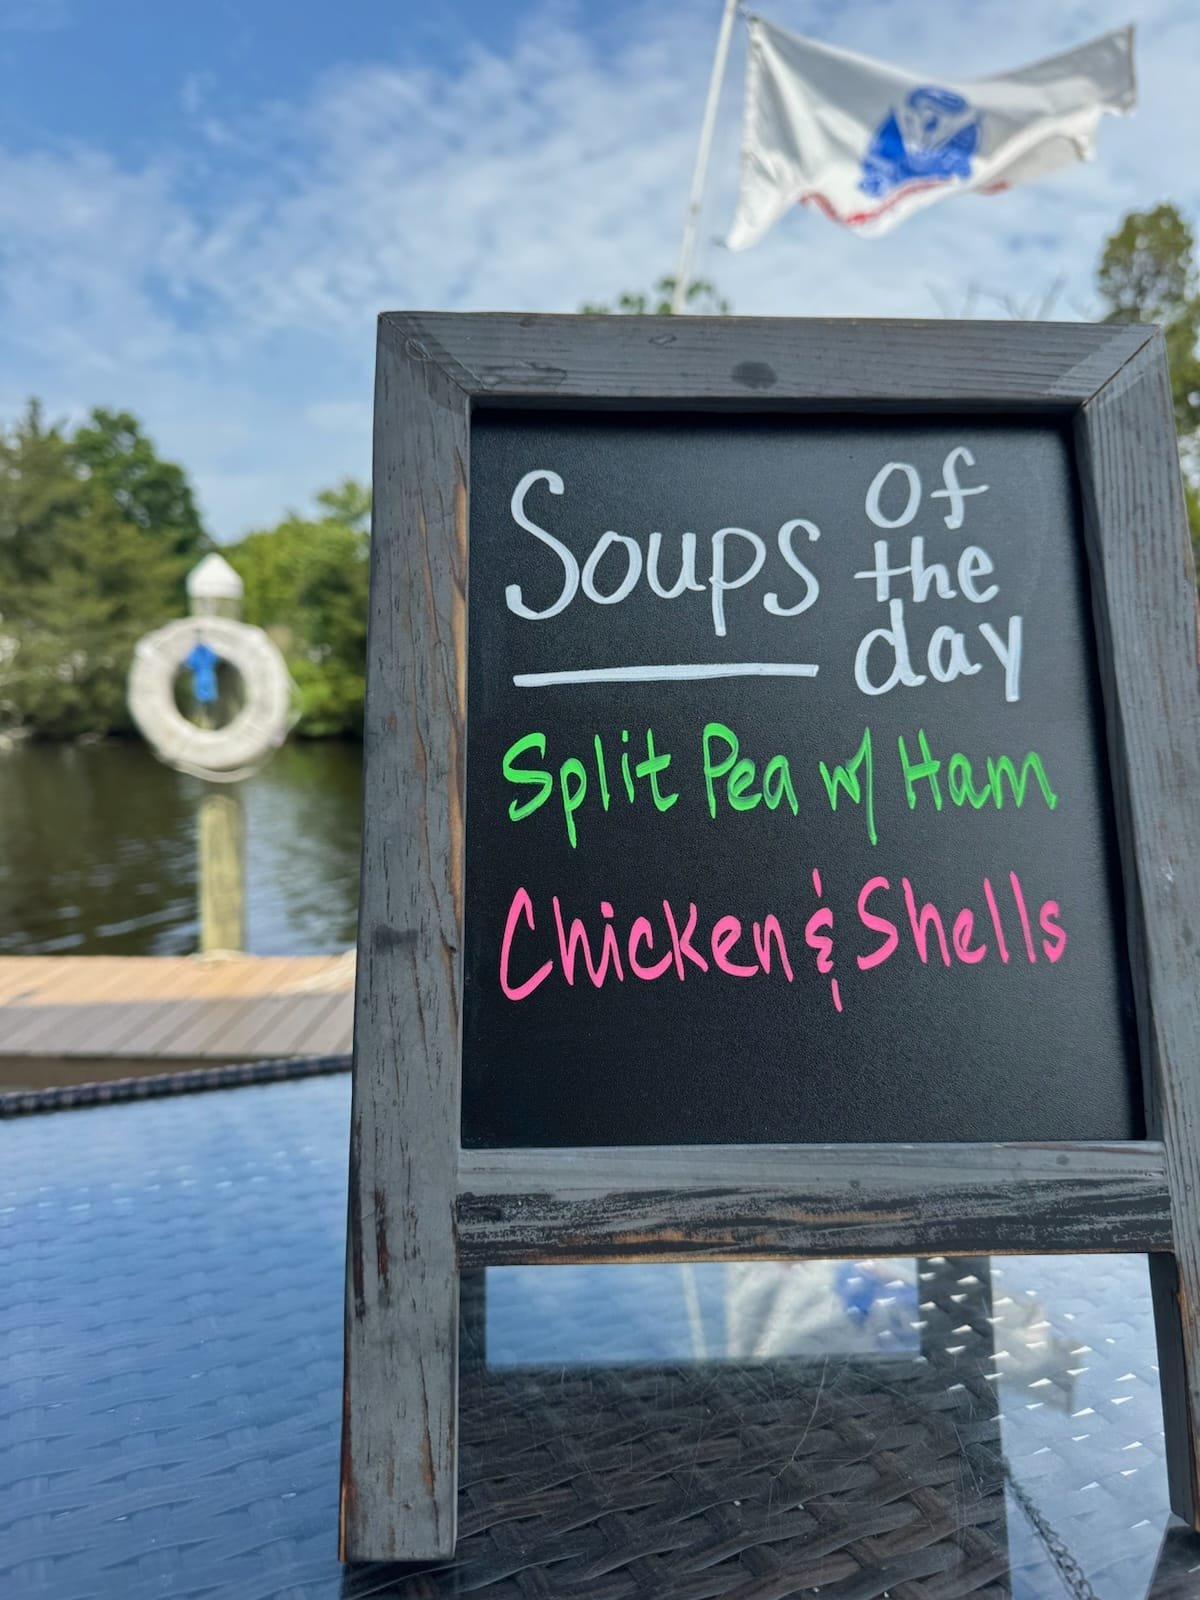 Soups of the day
Split Pea w/ Ham
Chicken & Shells